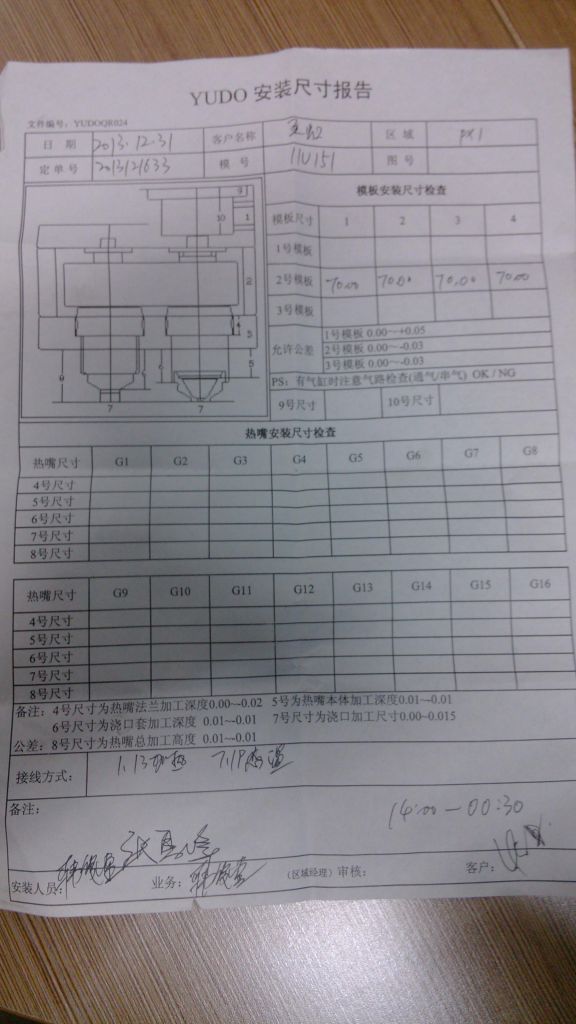 YUDO 安装尺寸报告
文件编号：YUDOQR024
日 期 2013.12.31 客户名称 区 域
定单号 2013121633 模 号 11U151 图 号
模板安装尺寸检查
模板尺寸 1 2 3 4
1号模板
2号模板 70.00 70.00 70.00 70.00
3号模板
允许公差 1号模板 0.00~+0.05
2号模板 0.00~-0.03
3号模板 0.00~-0.03
PS：有气缸时注意气路检查(通气/串气) OK / NG
9号尺寸 10号尺寸
9
10 1
2
4 3
8 6 6 5
7 7
热嘴安装尺寸检查
热嘴尺寸 G1 G2 G3 G4 G5 G6 G7 G8
4号尺寸
5号尺寸
6号尺寸
7号尺寸
8号尺寸
热嘴尺寸 G9 G10 G11 G12 G13 G14 G15 G16
4号尺寸
5号尺寸
6号尺寸
7号尺寸
8号尺寸
备注：4号尺寸为热嘴法兰加工深度0.00~-0.02 5号为热嘴本体加工深度0.01~-0.01
6号尺寸为浇口套加工深度 0.01~-0.01 7号尺寸为浇口加工尺寸0.00~0.015
公差：8号尺寸为热嘴总加工高度 0.01~-0.01
接线方式： 1.13加热
备注：
14:00—00:30
安装人员： 业务： （区域经理）审核： 客户：